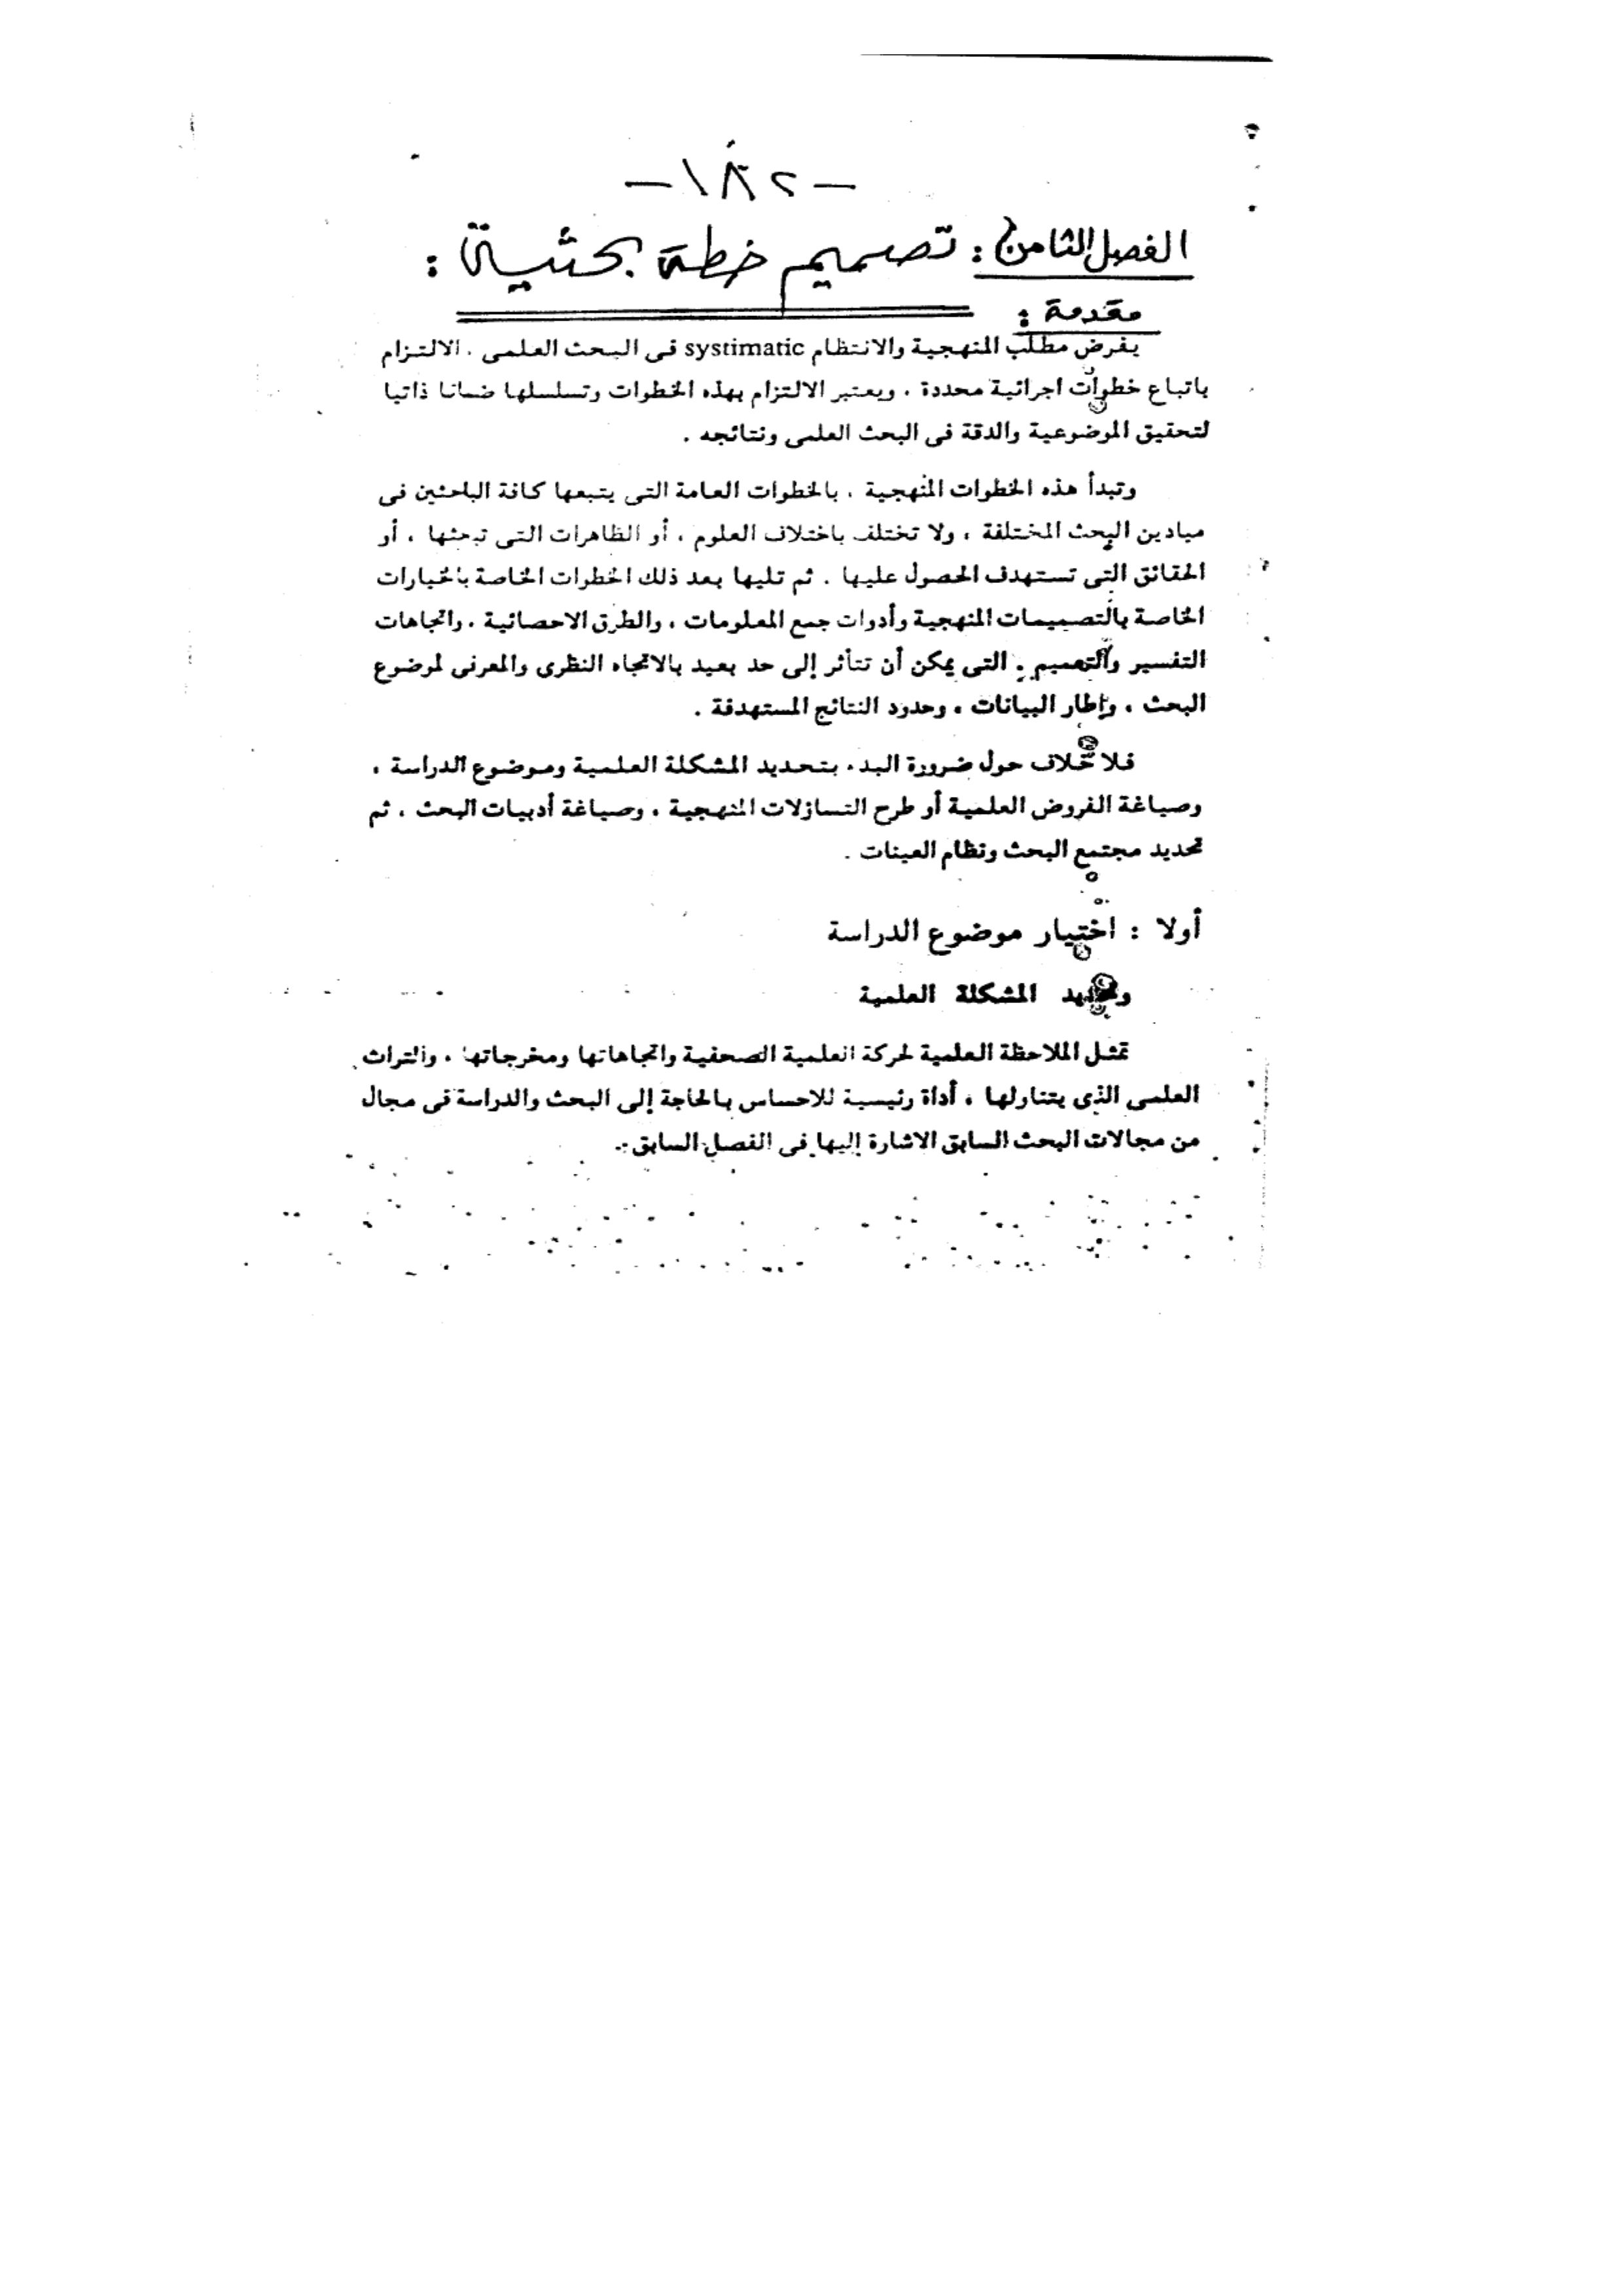 -١٨٢-
الفصل الثامن : تصميم خطة بحثية :
مقدمة :
يفرض مطلب المنهجية والانتظام systimatic فى البحث العلمى ، الالتزام
باتباع خطوات اجرائية محددة ، ويعتبر الالتزام بهذه الخطوات وتسلسلها ضمانا ذاتيا
لتحقيق الموضوعية والدقة فى البحث العلمى ونتائجه .
وتبدأ هذه الخطوات المنهجية ، بالخطوات العامة التى يتبعها كافة الباحثين فى
ميادين البحث المختلفة ، ولا تختلف باختلاف العلوم ، أو الظاهرات التى تبحثها ، أو
الحقائق التى تستهدف الحصول عليها . ثم تليها بعد ذلك الخطوات الخاصة بالخيارات
الخاصة بالتصميمات المنهجية وأدوات جمع المعلومات ، والطرق الاحصائية ، واتجاهات
التفسير والتعميم . التى يمكن أن تتأثر إلى حد بعيد بالاتجاه النظرى والمعرفى لموضوع
البحث ، وإطار البيانات ، وحدود النتائج المستهدفة .
فلا خلاف حول ضرورة البدء بتحديد المشكلة العلمية وموضوع الدراسة ،
وصياغة الفروض العلمية أو طرح التساؤلات المنهجية ، وصياغة أدبيات البحث ، ثم
تحديد مجتمع البحث ونظام العينات .
أولا : اختيار موضوع الدراسة
وتحديد المشكلة العلمية
تمثل الملاحظة العلمية لحركة العلمية الصحفية واتجاهاتها ومخرجاتها ، والتراث
العلمى الذى يتناولها ، أداة رئيسية للاحساس بالحاجة إلى البحث والدراسة فى مجال
من مجالات البحث السابق الاشارة إليها فى الفصل السابق .